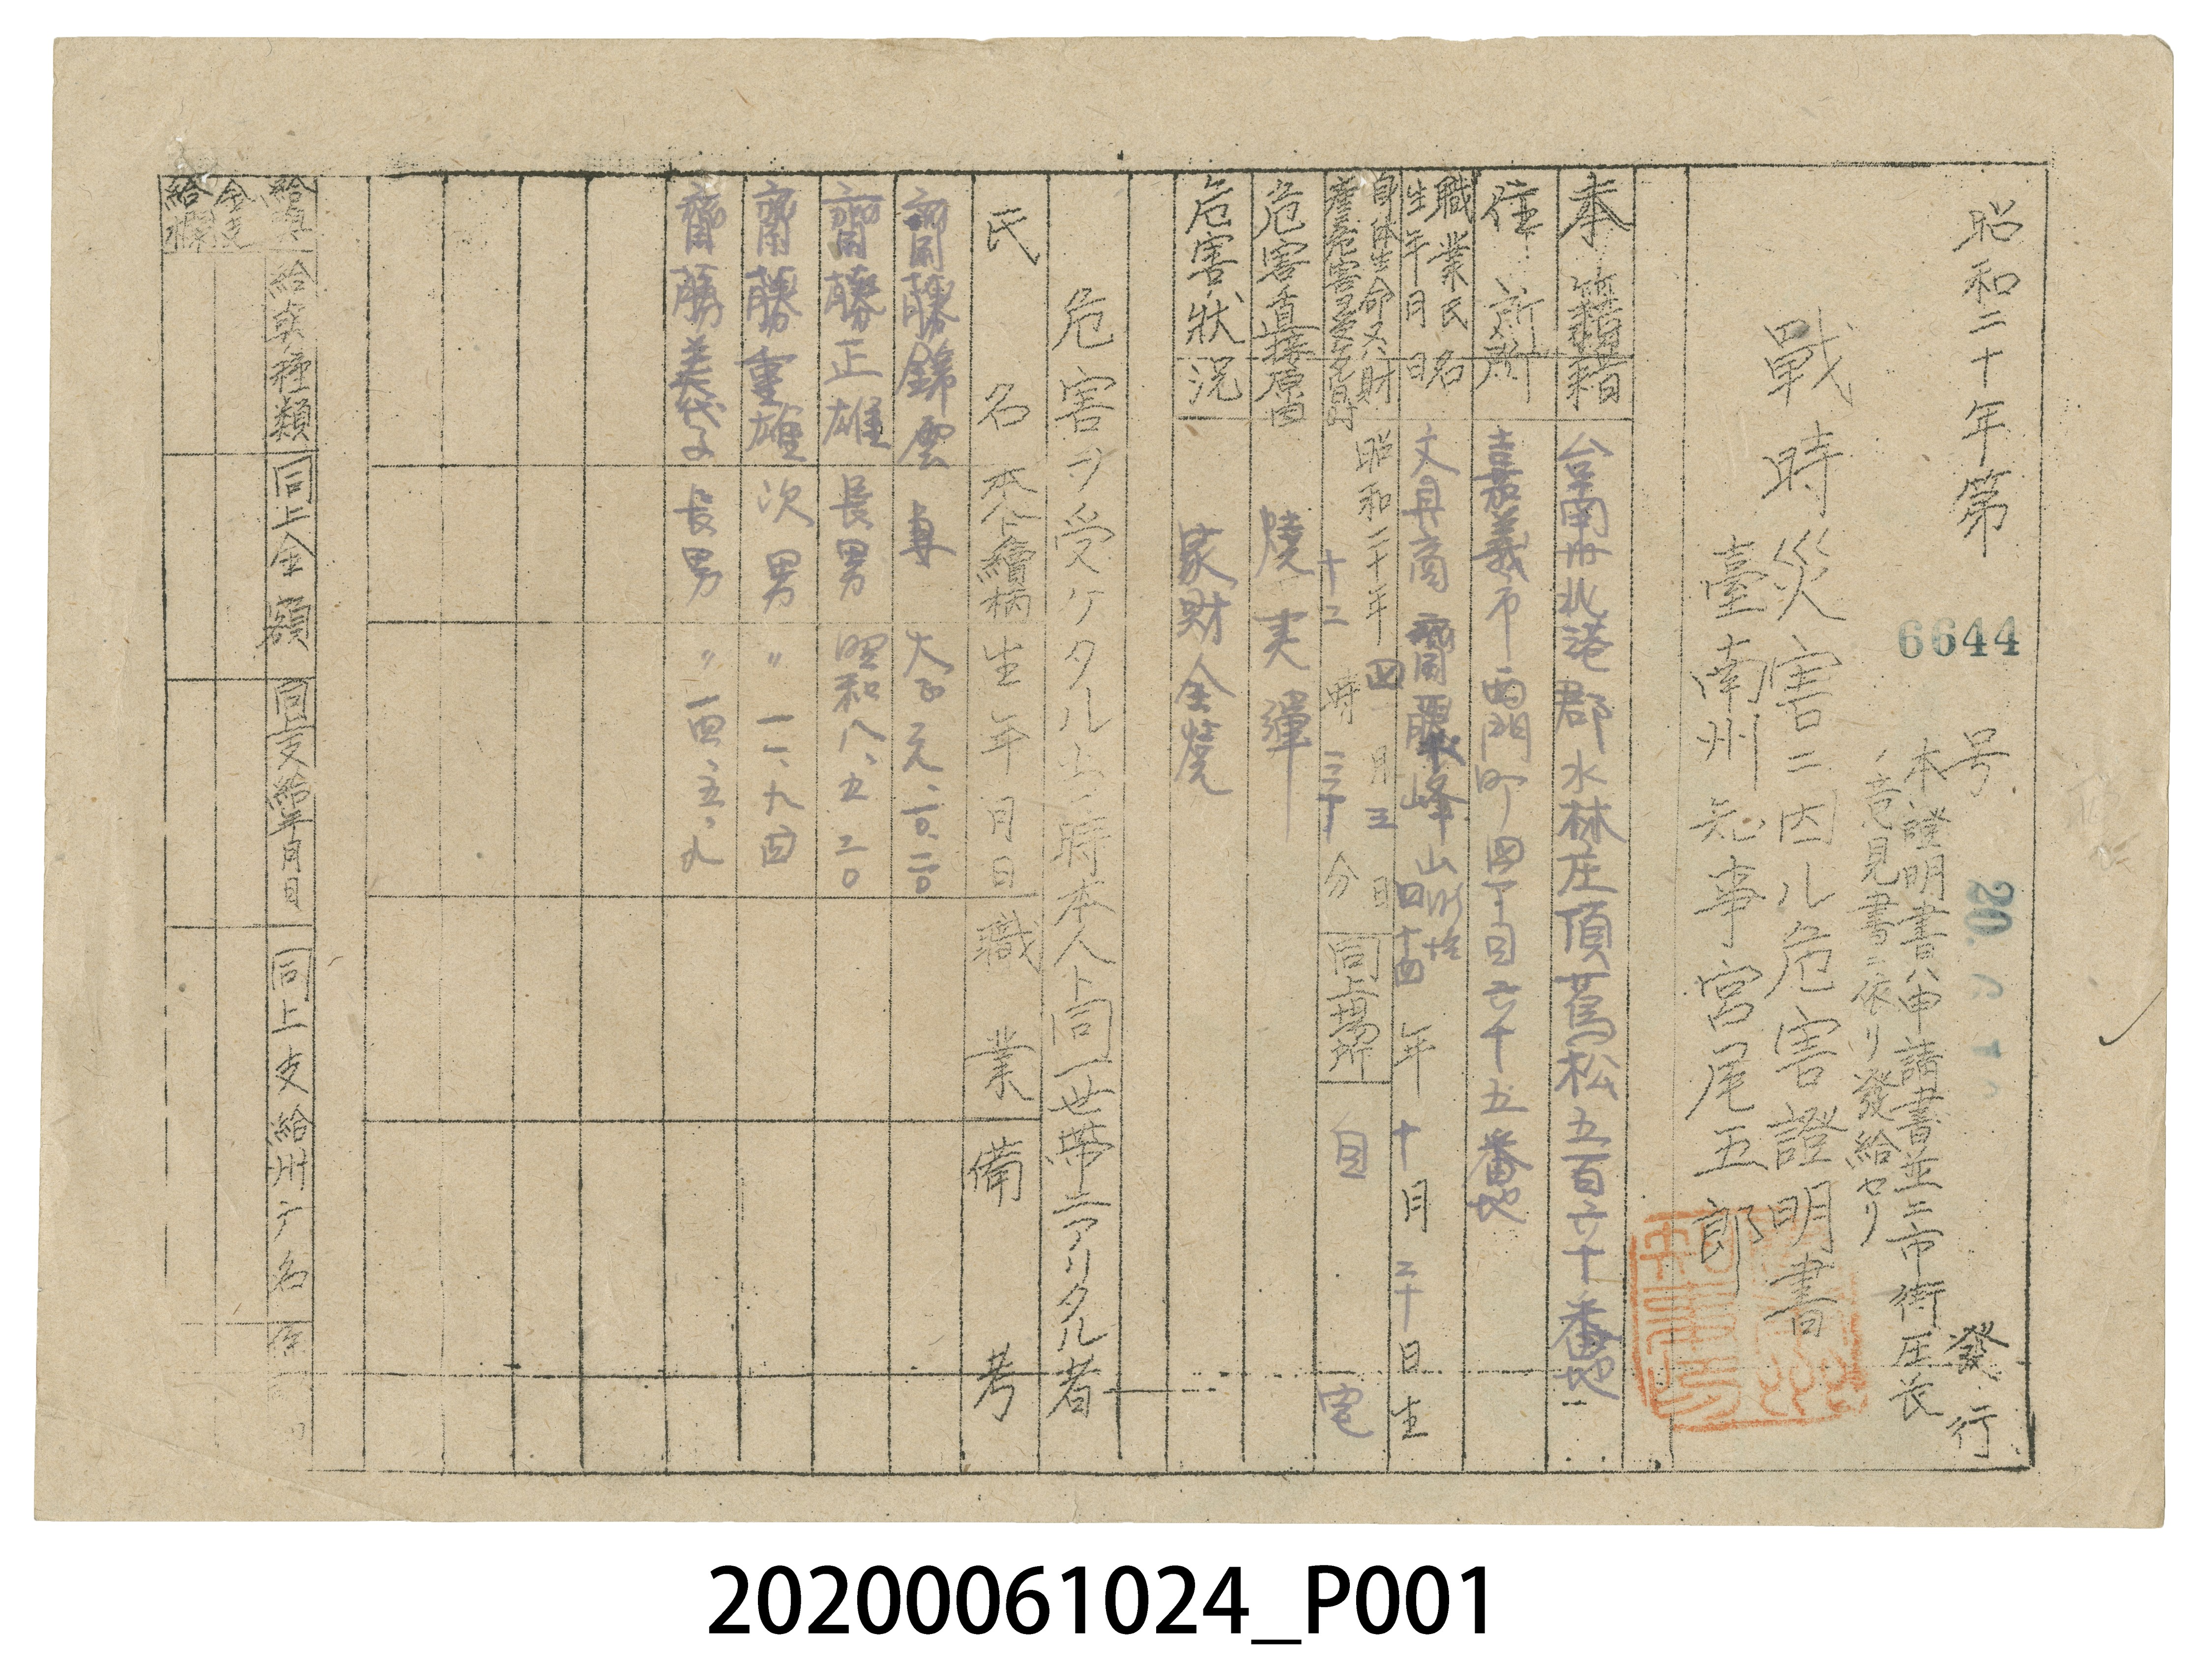 昭和二十年第 6644 号 發行
20. 6. 1
本證明書ハ申請書並ニ市街庄長
ノ意見書ニ依リ發給セリ
戰時災害ニ因ル危害證明書
臺南州知事宮尾五郎
本籍 台南州北港郡水林庄頂蔦松五百六十番地
住所 嘉義市西門町四丁目六十五番地
職業氏名 文具商
生年月日 四十四年十月二十日生
自体生命又ハ財
產危害ヲ受ケタル日時 昭和二十年四月三日
十二時三十分 同上場所 自宅
危害直接原因 燒夷彈
危害狀況 家財全燒
危害ヲ受ケタル当時本人ト同一世帶ニアリタル者
氏名 本人トノ續柄 生年月日 職業 備考
齋藤錦雲 妻 大正元、一〇、二〇
齋藤正雄 長男 昭和八、五、二〇
齋藤重雄 次男 〃 一一、九、四
齋藤美代子 長男 〃 一四、五、九
給與
金支
給欄
給與種類 同上金額 同上支給年月日 同上支給州庁名
20200061024_P001